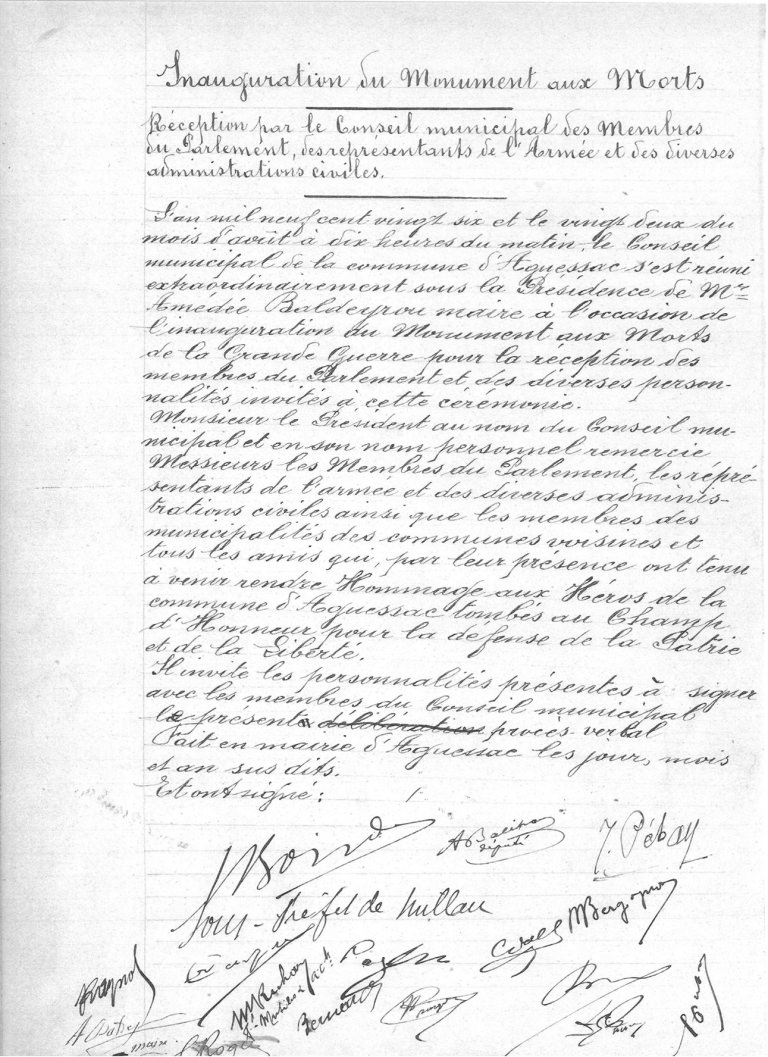 Inauguration du Monument aux Morts
Réception par le Conseil municipal des Membres
du Parlement, des représentants de l'Armée et des diverses
administrations civiles.
L'an mil neuf cent vingt six et le vingt deux du
mois d'août à dix heures du matin, le Conseil
municipal de la commune d'Aguessac s'est réuni
extraordinairement sous la Présidence de Mr
Amédée Baldeyrou maire à l'occasion de
l'inauguration du Monument aux Morts
de la Grande Guerre pour la réception des
membres du Parlement et des diverses person-
nalités invités à cette cérémonie.
Monsieur le Président au nom du Conseil mu-
nicipal et en son nom personnel remercie
Messieurs les Membres du Parlement, les répré-
sentants de l'armée et des diverses adminis-
trations civiles ainsi que les membres des
municipalités des communes voisines et
tous les amis qui, par leur présence ont tenu
à venir rendre Hommage aux Héros de la
commune d'Aguessac tombés au Champ
d'Honneur pour la défense de la Patrie
et de la Liberté.
Il invite les personnalités présentes à signer
avec les membres du Conseil municipal
le présent délibération procès-verbal
Fait en mairie d'Aguessac les jour, mois
et an sus dits.
Et ont signé :
député
J. Péban
Sous-Préfet de Millau
maire